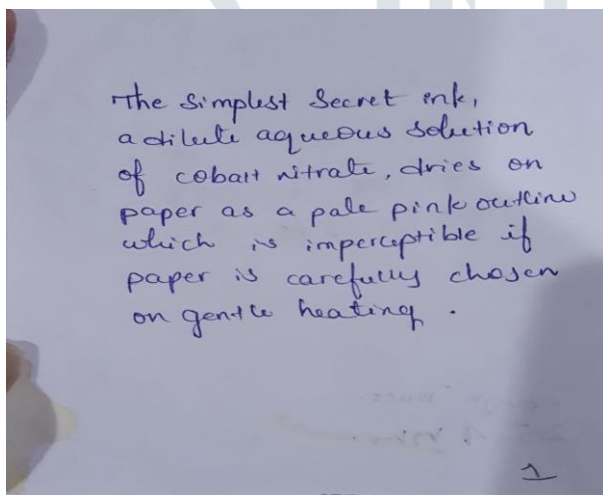 The Simplest Secret ink,
a dilute aqueous solution
of cobalt nitrate, dries on
paper as a pale pink outline
which is imperceptible if
paper is carefully chosen
on gentle heating.
1